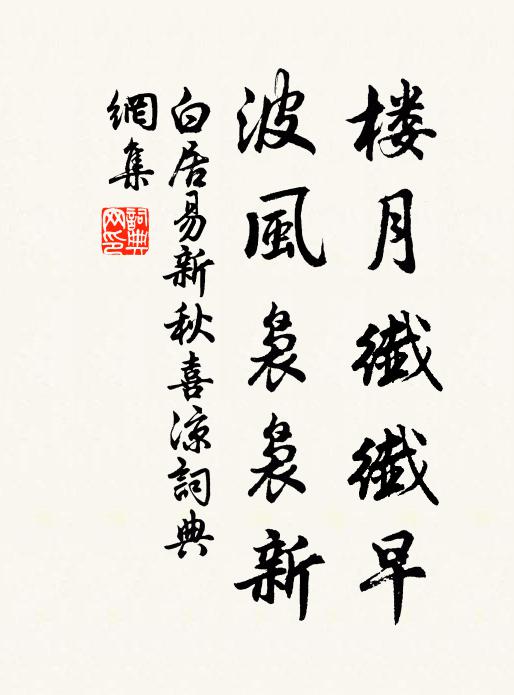 楼月纖纖早
波風裊裊新
白居易新秋喜凉詞典
網集
詞典
网印